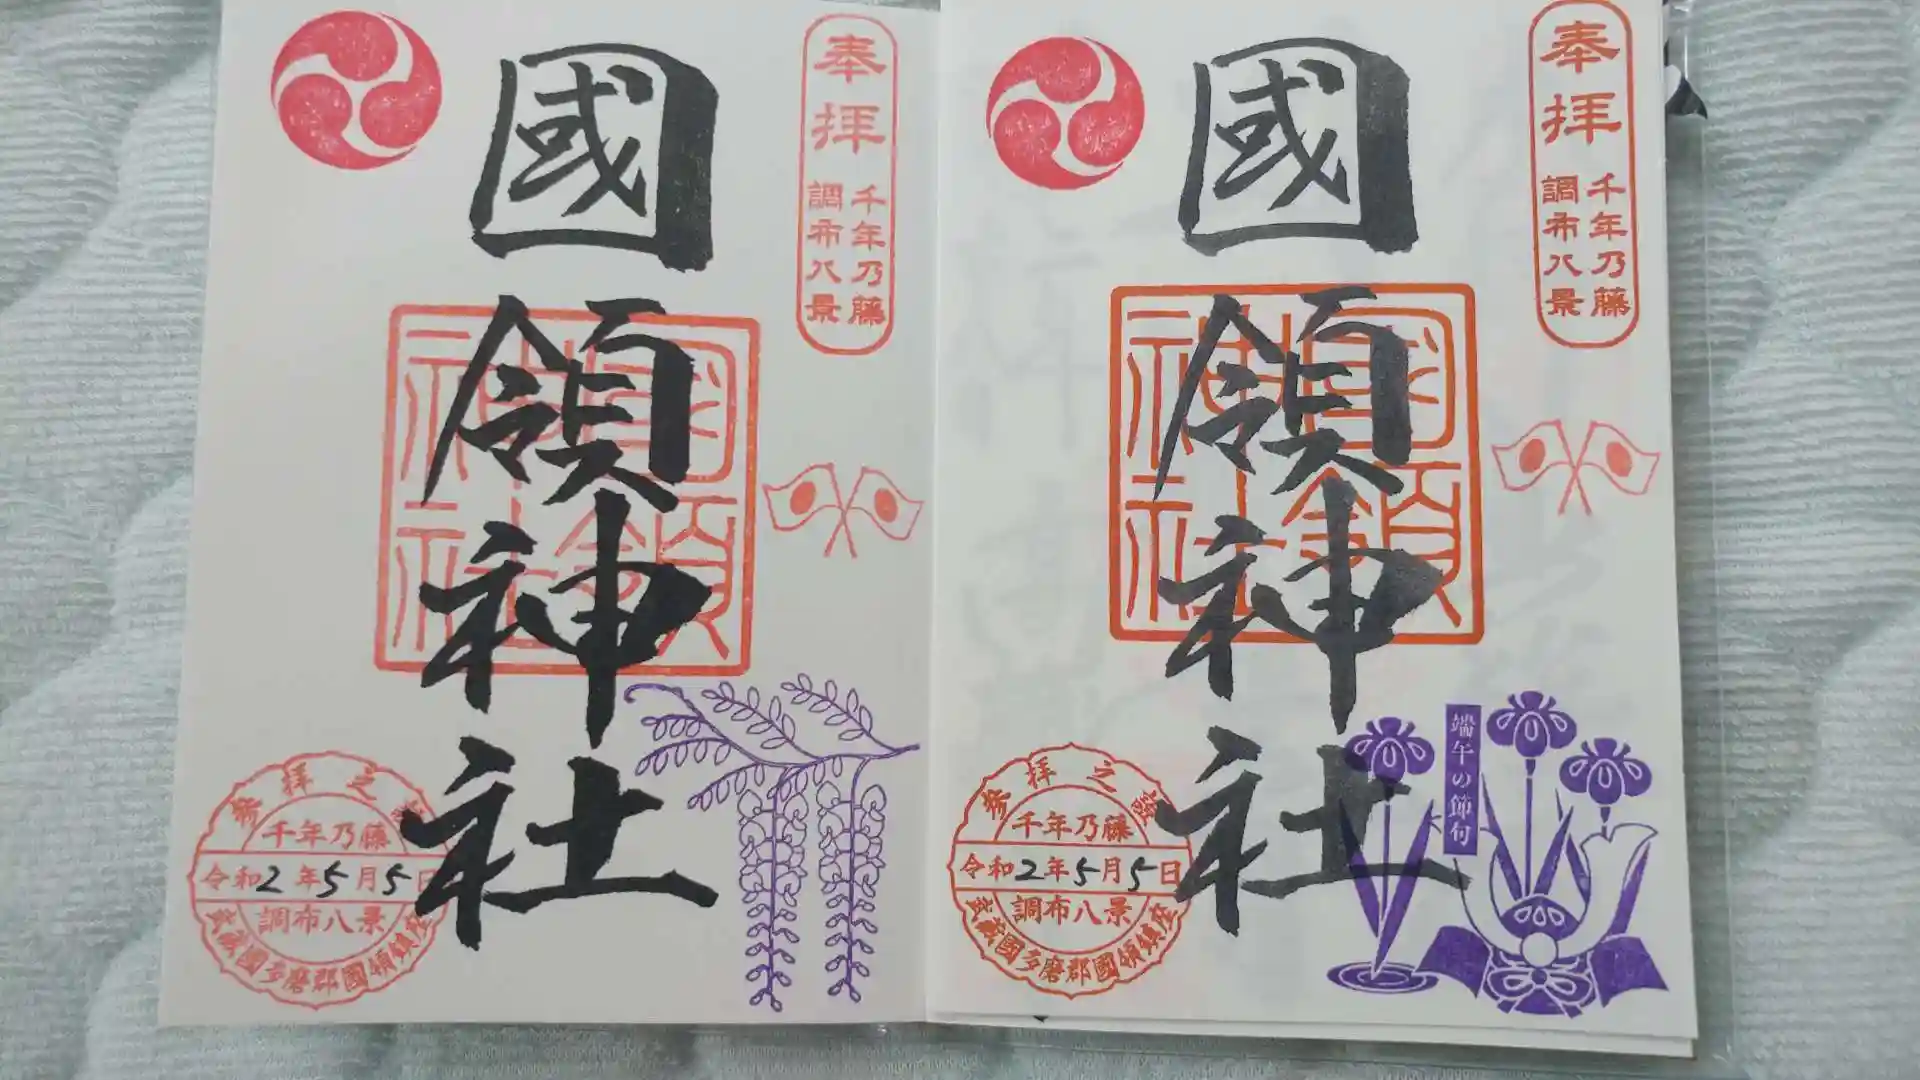 奉拝
千年乃藤
調布八景
國領神社
國領神社
参拝之證
千年乃藤
令和2年5月5日
調布八景
武蔵國多磨郡國領鎮座
奉拝
千年乃藤
調布八景
國領神社
國領神社
端午の節句
参拝之證
千年乃藤
令和2年5月5日
調布八景
武蔵國多磨郡國領鎮座